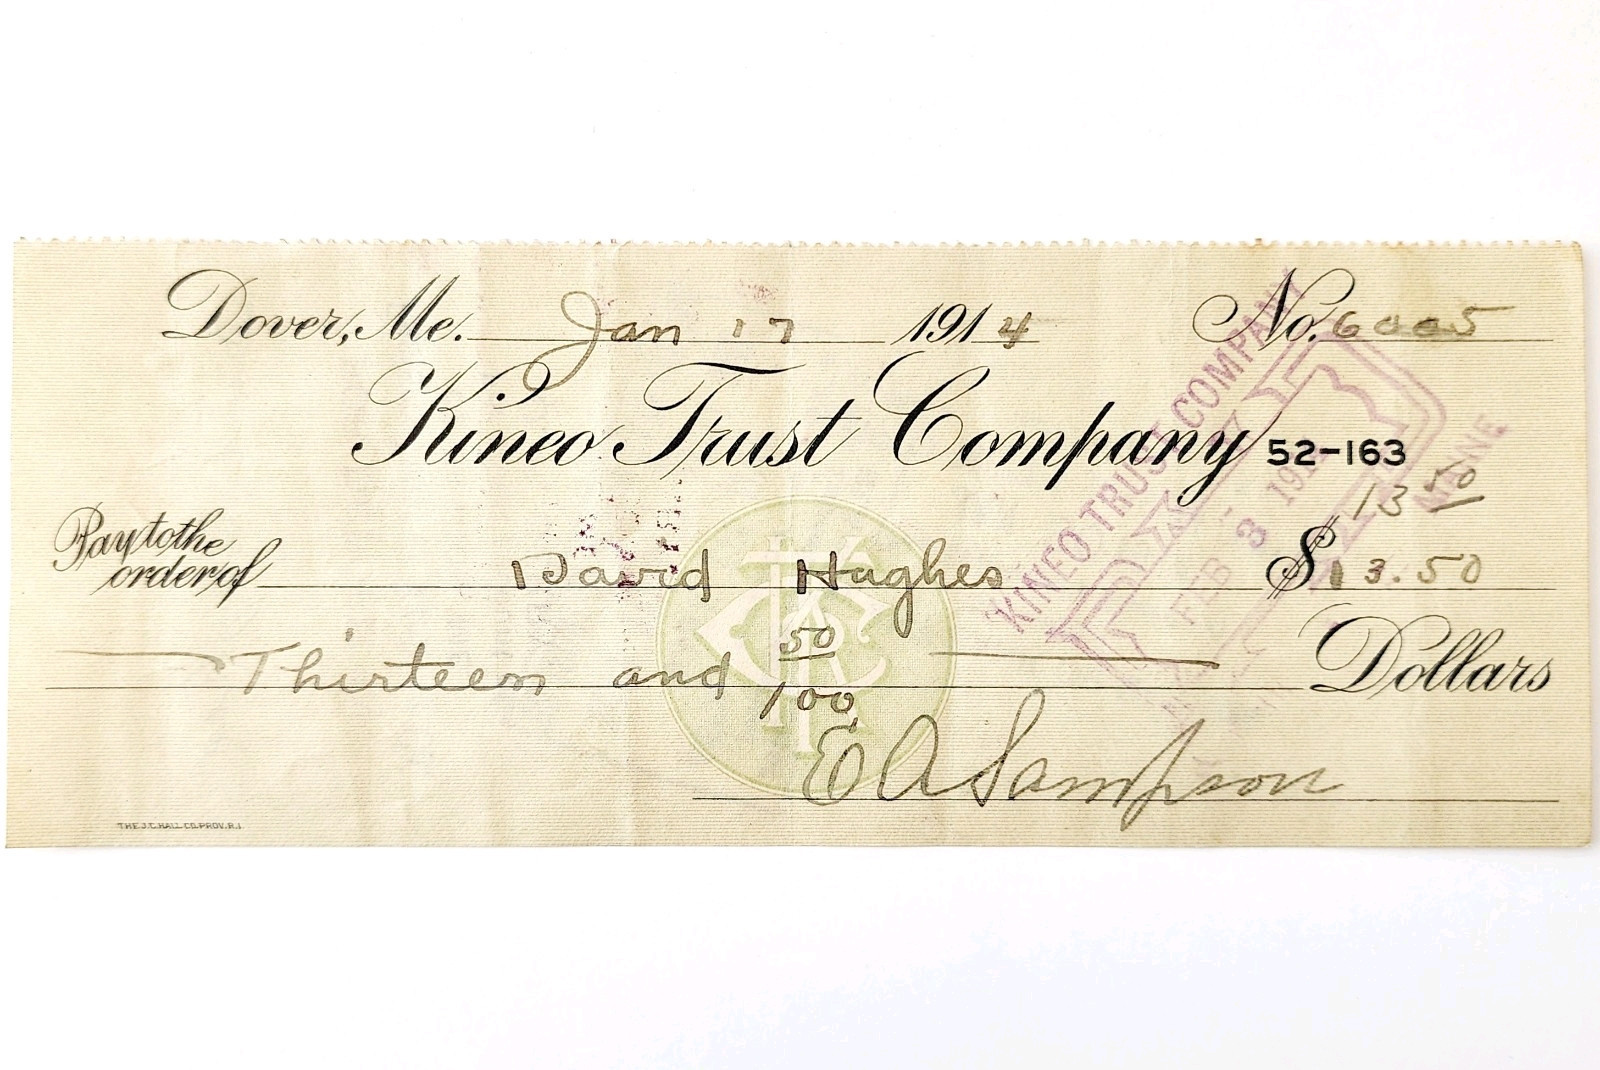 Dover, Me. Jan 17 1914 No. 6005
Kineo Trust Company 52-163
13 50
Pay to the order of David Hughes $13.50
Thirteen and 50/100 Dollars
E A Sampson
THE J.C. HALL CO. PROV. R.I.
KINEO TRUST COMPANY
PAID
FEB 3 1914
MAINE